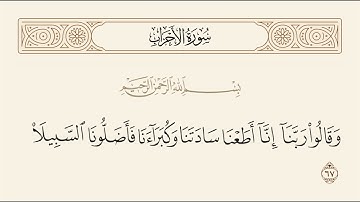 سُورَةُ الأَحْزَابِ
بِسْمِ اللَّهِ الرَّحْمَٰنِ الرَّحِيمِ
وَقَالُوا۟ رَبَّنَآ إِنَّآ أَطَعْنَا سَادَتَنَا وَكُبَرَآءَنَا فَأَضَلُّونَا ٱلسَّبِيلَا۠
٦٧